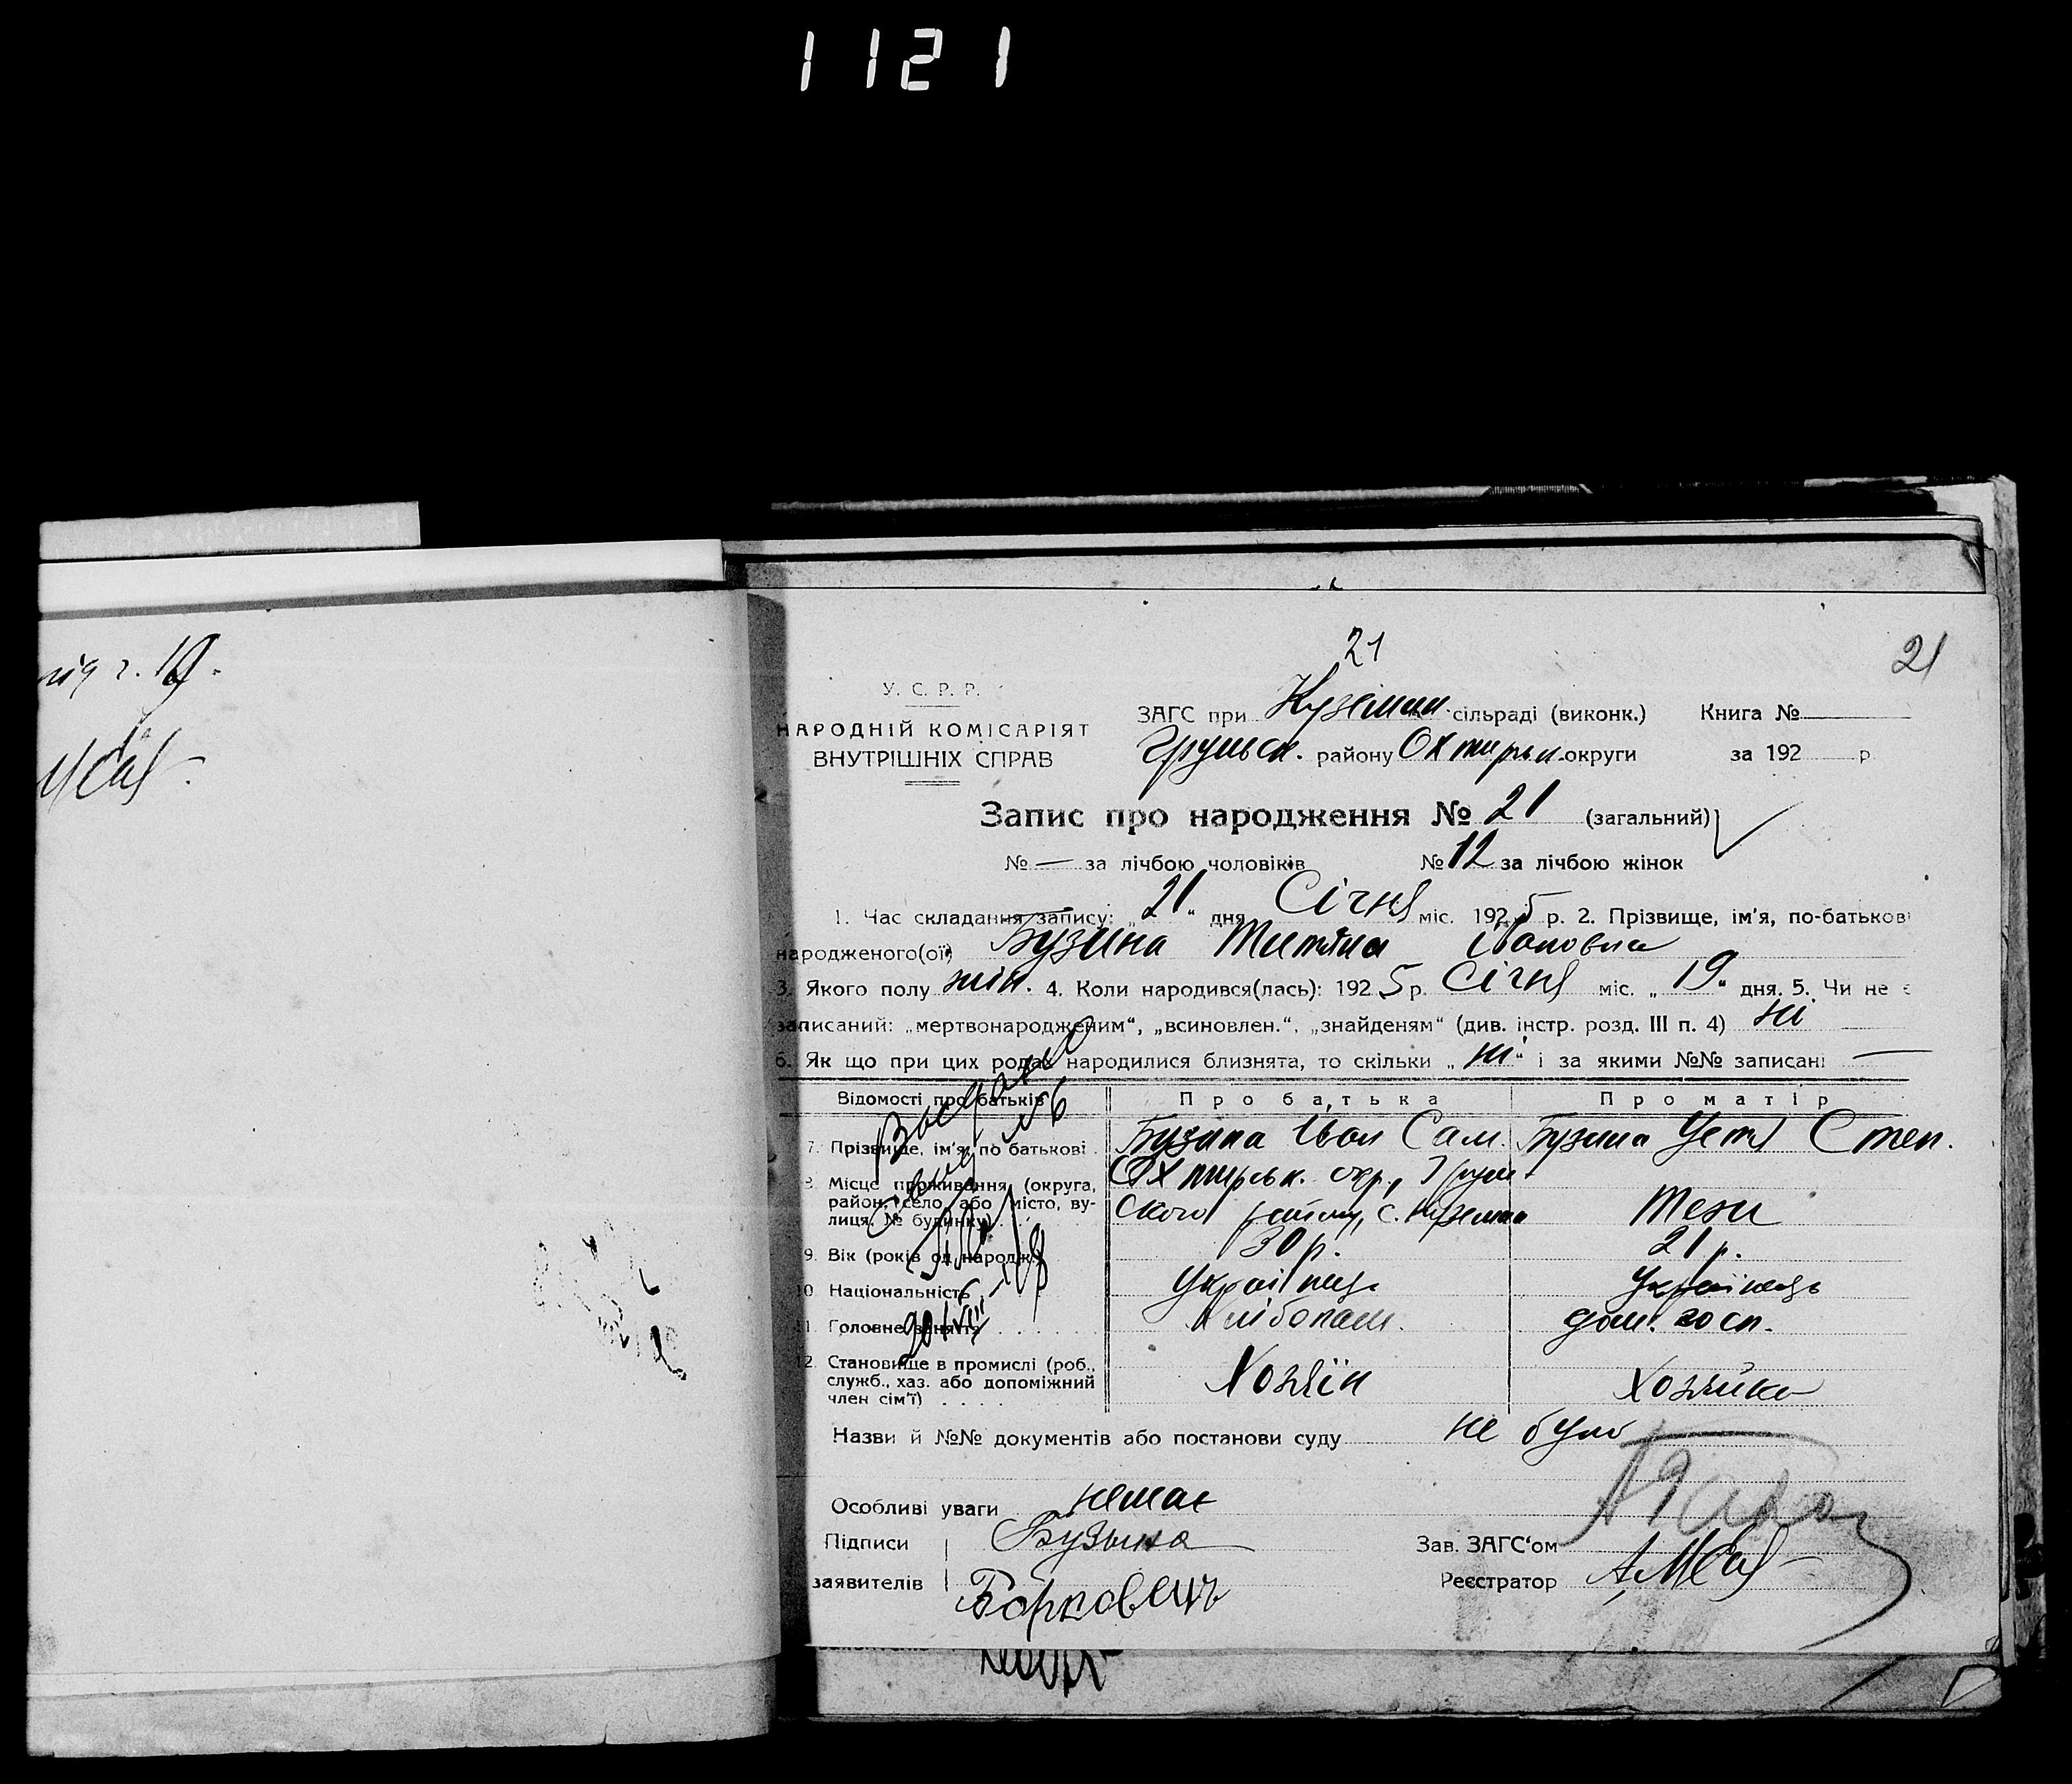 1121
21
21
У. С. Р. Р.
НАРОДНІЙ КОМІСАРІЯТ
ВНУТРІШНІХ СПРАВ
ЗАГС при Куземин. сільраді (виконк.) Книга №
Грунськ. району Охтирськ. округи за 192 р.
Запис про народження № 21 (загальний)
№ — за лічбою чоловіків № 12 за лічбою жінок
1. Час складання запису: „21“ дня Січня міс. 1925 р. 2. Прізвище, ім'я, по-батькові
народженого(ої) Бузина Ивановна
3. Якого полу жін. 4. Коли народився(лась): 1925 р. Січня міс. „19“ дня. 5. Чи не є
записаний: „мертвонародженим“, „всиновлен.“, „знайденям“ (див. інстр. розд. III п. 4) ні
6. Як що при цих родах народилися близнята, то скільки „ні“ і за якими №№ записані —
Відомості про батьків Про батька Про матір
7. Прізвище, ім'я, по батькові Бузина Іван Сам. Бузина Устя Степ.
8. Місце проживання (округа, район, село або місто, вулиця, № будинку) Охтирськ. окр., Грунського району, с. Куземин
9. Вік (років од народж.) 30 р. 21 р.
10. Національність Українець Українець
11. Головне заняття Хлібопаш. дом. госп.
12. Становище в промислі (роб., служб., хаз. або допоміжний член сім'ї) Хозяїн Хозяйка
Назви й №№ документів або постанови суду не було
Особливі уваги немає
Підписи Бузына Зав. ЗАГС'ом
заявителів Борковець Реєстратор